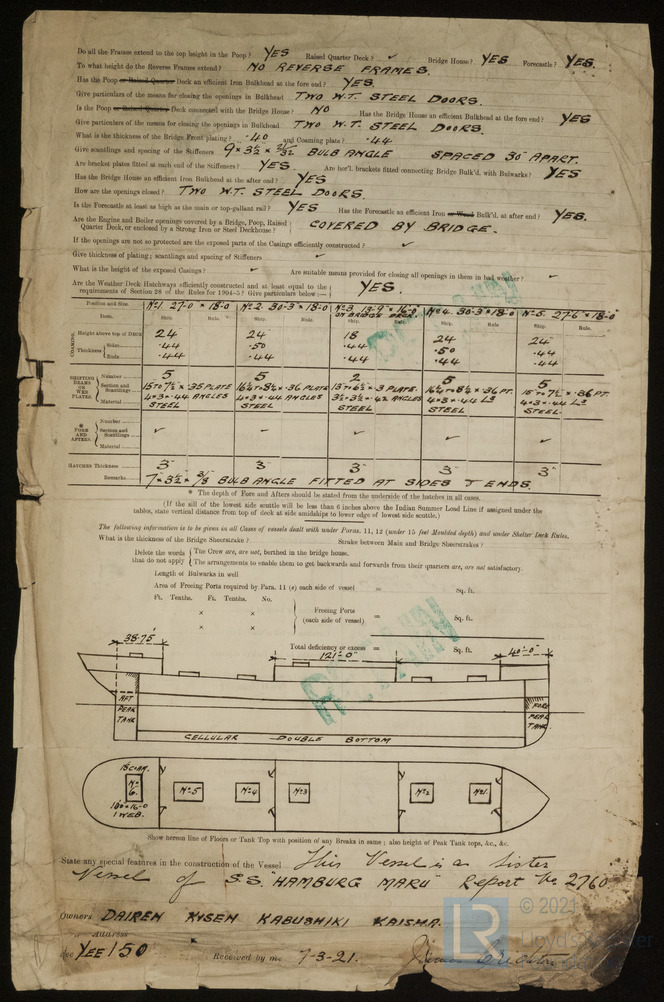 Do all the Frames extend to the top height in the Poop? YES Raised Quarter Deck? ✓ Bridge House? YES Forecastle? YES.
To what height do the Reverse Frames extend? NO REVERSE FRAMES.
Has the Poop or Raised Quarter Deck an efficient Iron Bulkhead at the fore end? YES.
Give particulars of the means for closing the openings in Bulkhead TWO W.T. STEEL DOORS.
Is the Poop or Raised Quarter Deck connected with the Bridge House? NO Has the Bridge House an efficient Bulkhead at the fore end? YES
Give particulars of the means for closing the openings in Bulkhead TWO W.T. STEEL DOORS.
What is the thickness of the Bridge Front plating? .40 and Coaming plate? .44
Give scantlings and spacing of the Stiffeners 9 × 3½ × BULB ANGLE SPACED 30" APART.
Are bracket plates fitted at each end of the Stiffeners? YES. Are hor'l. brackets fitted connecting Bridge Bulk'd. with Bulwarks? YES
Has the Bridge House an efficient Iron Bulkhead at the after end? YES
How are the openings closed? TWO W.T. STEEL DOORS.
Is the Forecastle at least as high as the main or top-gallant rail? YES Has the Forecastle an efficient Iron or Wood Bulk'd. at after end? YES.
Are the Engine and Boiler openings covered by a Bridge, Poop, Raised
Quarter Deck, or enclosed by a Strong Iron or Steel Deckhouse? COVERED BY BRIDGE.
If the openings are not so protected are the exposed parts of the Casings efficiently constructed? ✓
Give thickness of plating; scantlings and spacing of Stiffeners ✓
What is the height of the exposed Casings? ✓ Are suitable means provided for closing all openings in them in bad weather? ✓
Are the Weather Deck Hatchways efficiently constructed and at least equal to the
requirements of Section 28 of the Rules for 1904-5? Give particulars below:— YES.
Position and Size. No 1. 27-0 × 18-0 No 2. 30-3 × 18-0 No 3 13-9 × 16-0 ON BRIDGE DECK No 4. 30-3 × 18-0 No 5. 27-6 × 18-0
Item. Ship. Rule. Ship. Rule. Ship. Rule. Ship. Rule. Ship. Rule.
COAMING. Height above top of DECK 24 24 18 24 24
Thickness Sides .44 .50 .44 .50 .44
Ends .44 .44 .44 .44 .44
SHIFTING BEAMS OR WEB PLATES. Number 5 5 2 5 5
Section and Scantlings 15 TO 7½ × .35 PLATE 16½ TO 8½ × .36 PLATE 13 TO 6½ × .3 PLATE. 16½ TO 8½ × .36 PT. 15 TO 7½ × .36 PT.
4×3×.44 ANGLES 4×3×.44 ANGLES 3½×3½×.42 ANGLES 4×3×.44 LS 4×3×.44 LS
Material STEEL STEEL STEEL STEEL STEEL
* FORE AND AFTERS. Number
Section and Scantlings ✓ ✓ ✓ ✓ ✓
Material
HATCHES Thickness 3" 3" 3" 3" 3"
Remarks 7" × 3½" × 3/8 BULB ANGLE FITTED AT SIDES & ENDS.
* The depth of Fore and Afters should be stated from the underside of the hatches in all cases.
(If the sill of the lowest side scuttle will be less than 6 inches above the Indian Summer Load Line if assigned under the
tables, state vertical distance from top of deck at side amidships to lower edge of lowest side scuttle.)
The following information is to be given in all Cases of vessels dealt with under Paras. 11, 12 (under 15 feet Moulded depth) and under Shelter Deck Rules.
What is the thickness of the Bridge Sheerstrake? Strake between Main and Bridge Sheerstrakes?
Delete the words that do not apply
The Crew are, are not, berthed in the bridge house.
The arrangements to enable them to get backwards and forwards from their quarters are, are not satisfactory.
Length of Bulwarks in well
Area of Freeing Ports required by Para. 11 (e) each side of vessel = Sq. ft.
Ft. Tenths. Ft. Tenths. No.
× ×
× ×
Freeing Ports
(each side of vessel) = Sq. ft.
Total deficiency or excess = Sq. ft.
38.75' 121'-0" 40'-0"
AFT PEAK TANK
FORE PEAK TANK.
CELLULAR DOUBLE BOTTOM
No 6.
1 WEB.
No 5 No 4 No 3 No 2 No 1.
Show hereon line of Floors or Tank Top with position of any Breaks in same; also height of Peak Tank tops, &c., &c.
State any special features in the construction of the Vessel This Vessel is a Sister
Vessel of S.S. "HAMBURG MARU" Report No. 2760
Owners DAIREN KISEN KABUSHIKI KAISHA.
Address
Fee YEE 150 Received by me 7-3-21.
LR © 2021